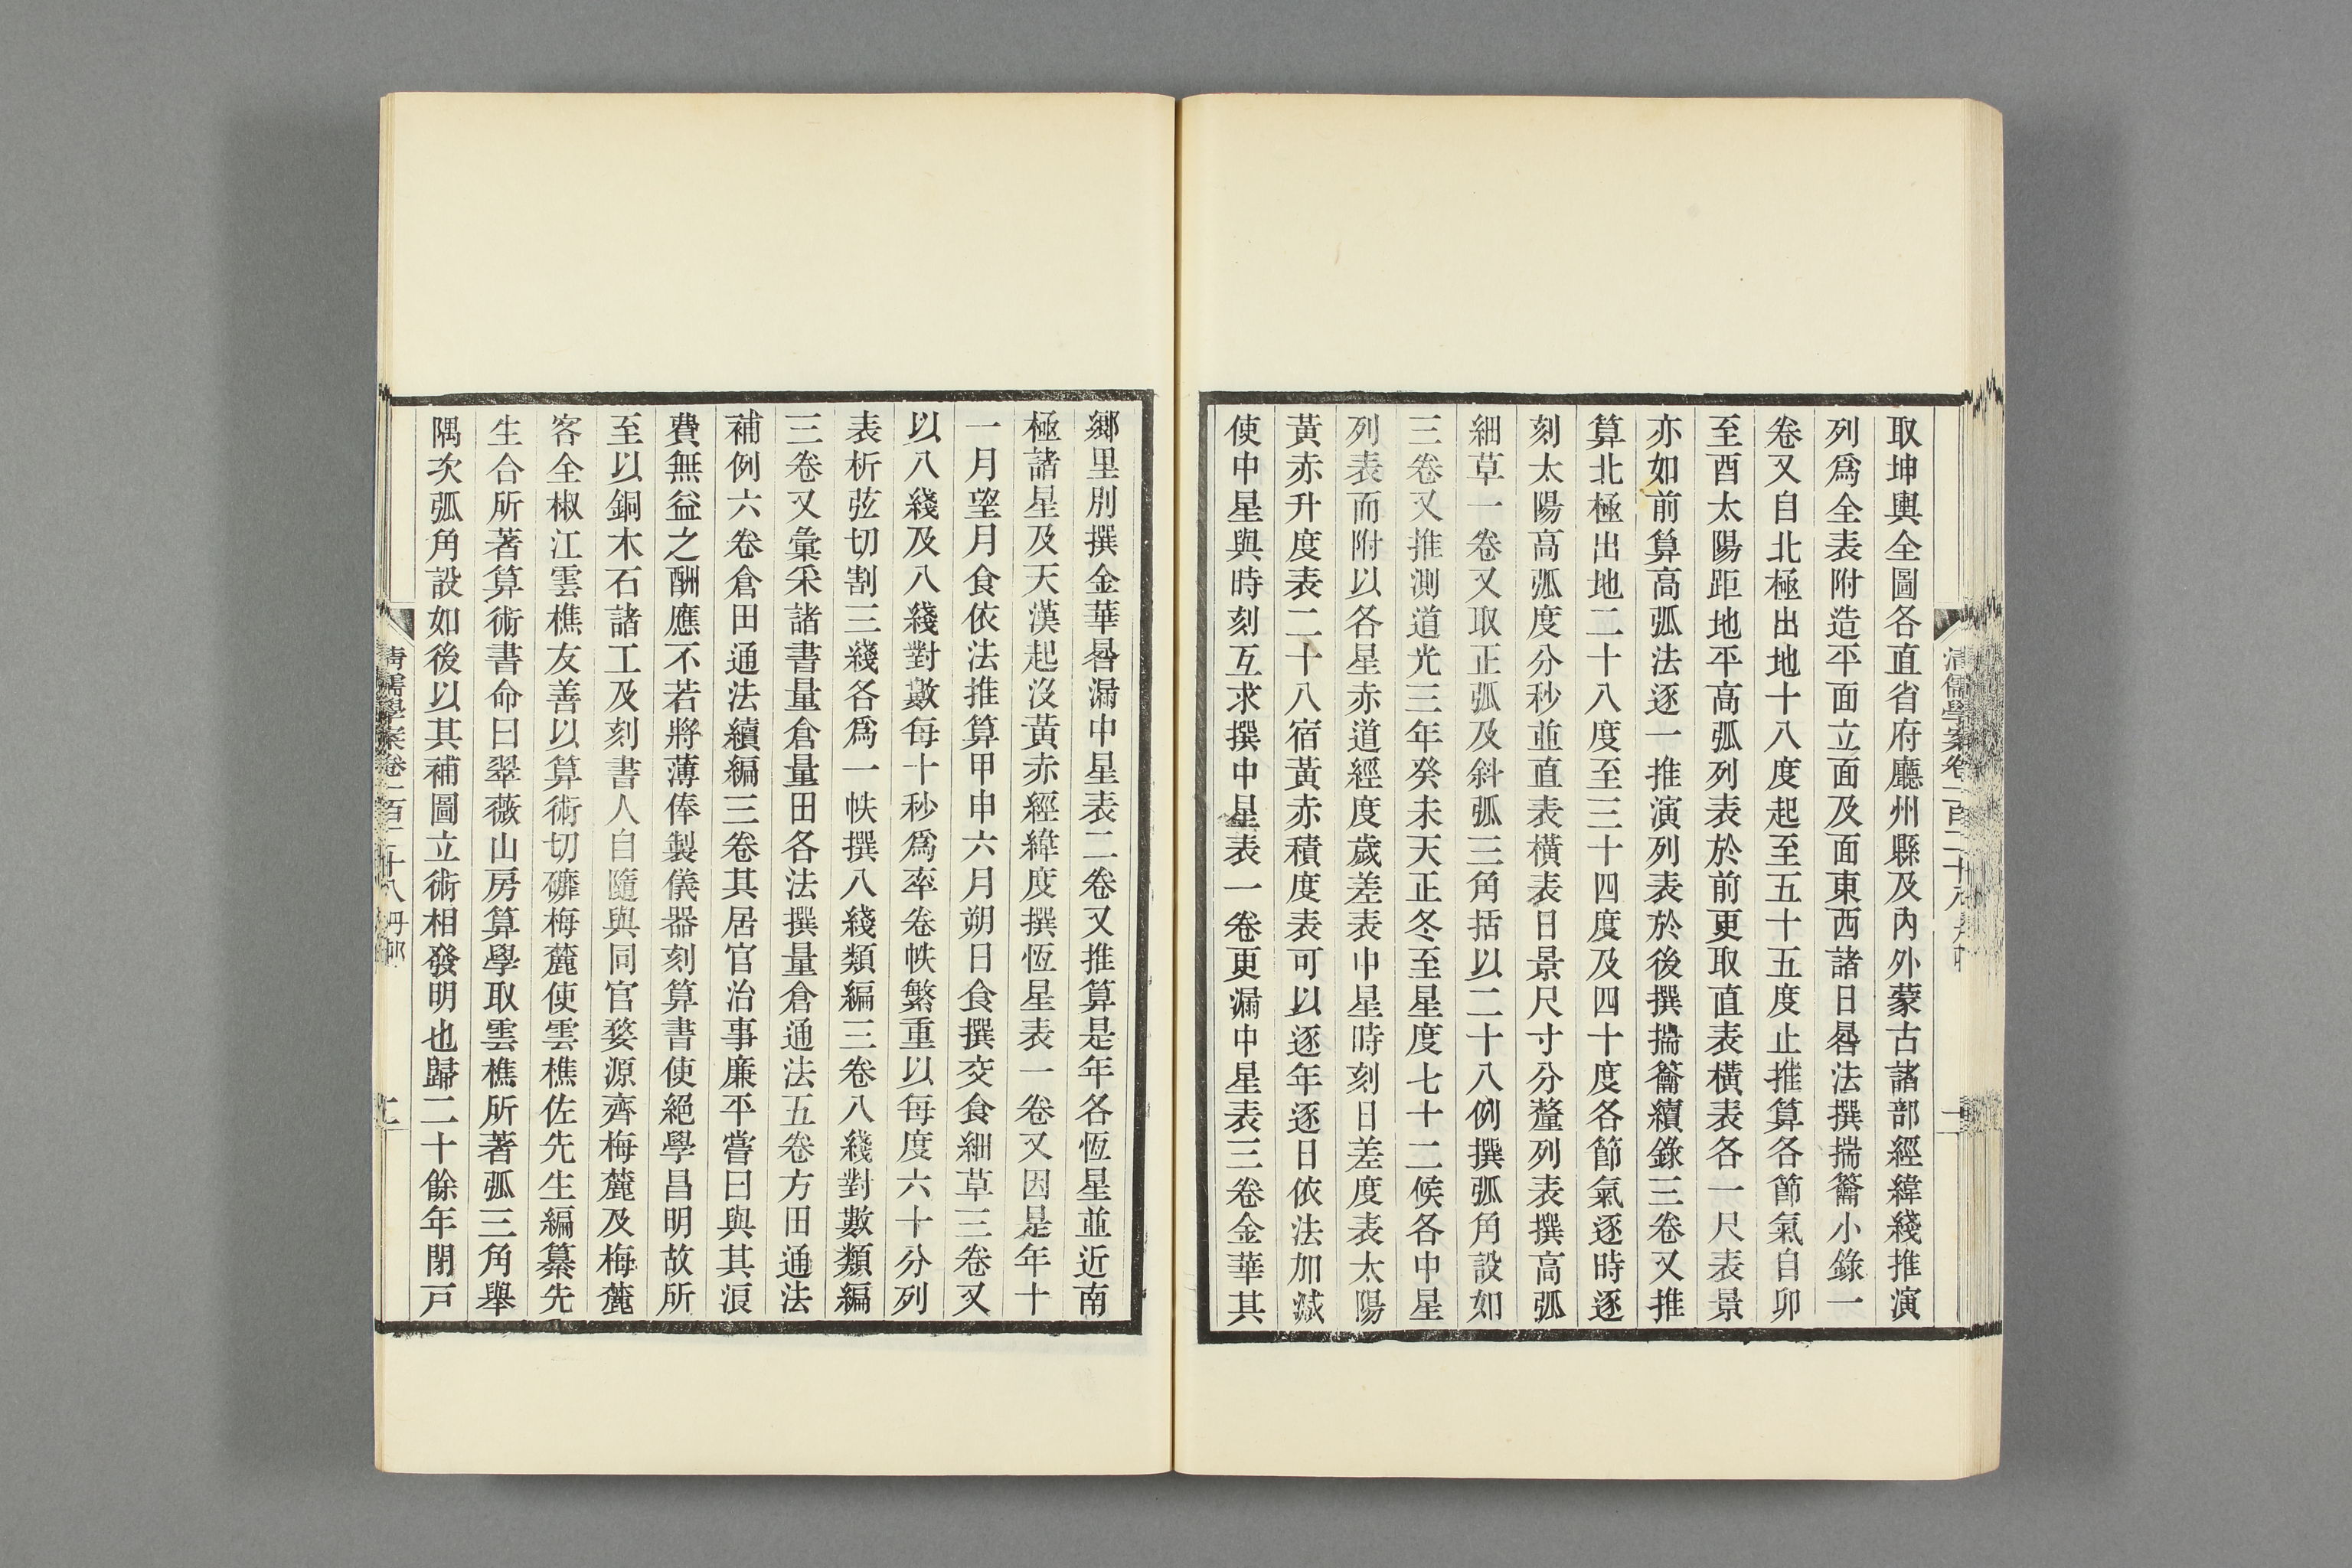 取坤輿全圖各直省府廳州縣及內外蒙古諸部經緯綫推演
列爲全表附造平面立面及面東西諸日晷法撰揣籥小錄一
卷又自北極出地十八度起至五十五度止推算各節氣自卯
至酉太陽距地平高弧列表於前更取直表橫表各一尺表景
亦如前算高弧法逐一推演列表於後撰揣籥續錄三卷又推
算北極出地二十八度至三十四度及四十度各節氣逐時逐
刻太陽高弧度分秒並直表橫表日景尺寸分釐列表撰高弧
細草一卷又取正弧及斜弧三角括以二十八例撰弧角設如
三卷又推測道光三年癸未天正冬至星度七十二候各中星
列表而附以各星赤道經度歲差表中星時刻日差度表太陽
黃赤升度表二十八宿黃赤積度表可以逐年逐日依法加減
使中星與時刻互求撰中星表一卷更漏中星表三卷金華其
清儒學案卷一百二十八
鄉里別撰金華晷漏中星表二卷又推算是年各恆星並近南
極諸星及天漢起沒黃赤經緯度撰恆星表一卷又因是年十
一月望月食依法推算甲申六月朔日食撰交食細草三卷又
以八綫及八綫對數每十秒爲率卷帙繁重以每度六十分列
表析弦切割三綫各爲一帙撰八綫類編三卷八綫對數類編
三卷又彙采諸書量倉量田各法撰量倉通法五卷方田通法
補例六卷倉田通法續編三卷其居官治事廉平嘗曰與其浪
費無益之酬應不若將薄俸製儀器刻算書使絕學昌明故所
至以銅木石諸工及刻書人自隨與同官婺源齊梅麓及梅麓
客全椒江雲樵友善以算術切磨梅麓使雲樵佐先生編纂先
生合所著算術書命曰翠薇山房算學取雲樵所著弧三角舉
隅次弧角設如後以其補圖立術相發明也歸二十餘年閉戶
清儒學案卷一百二十八 丹邨